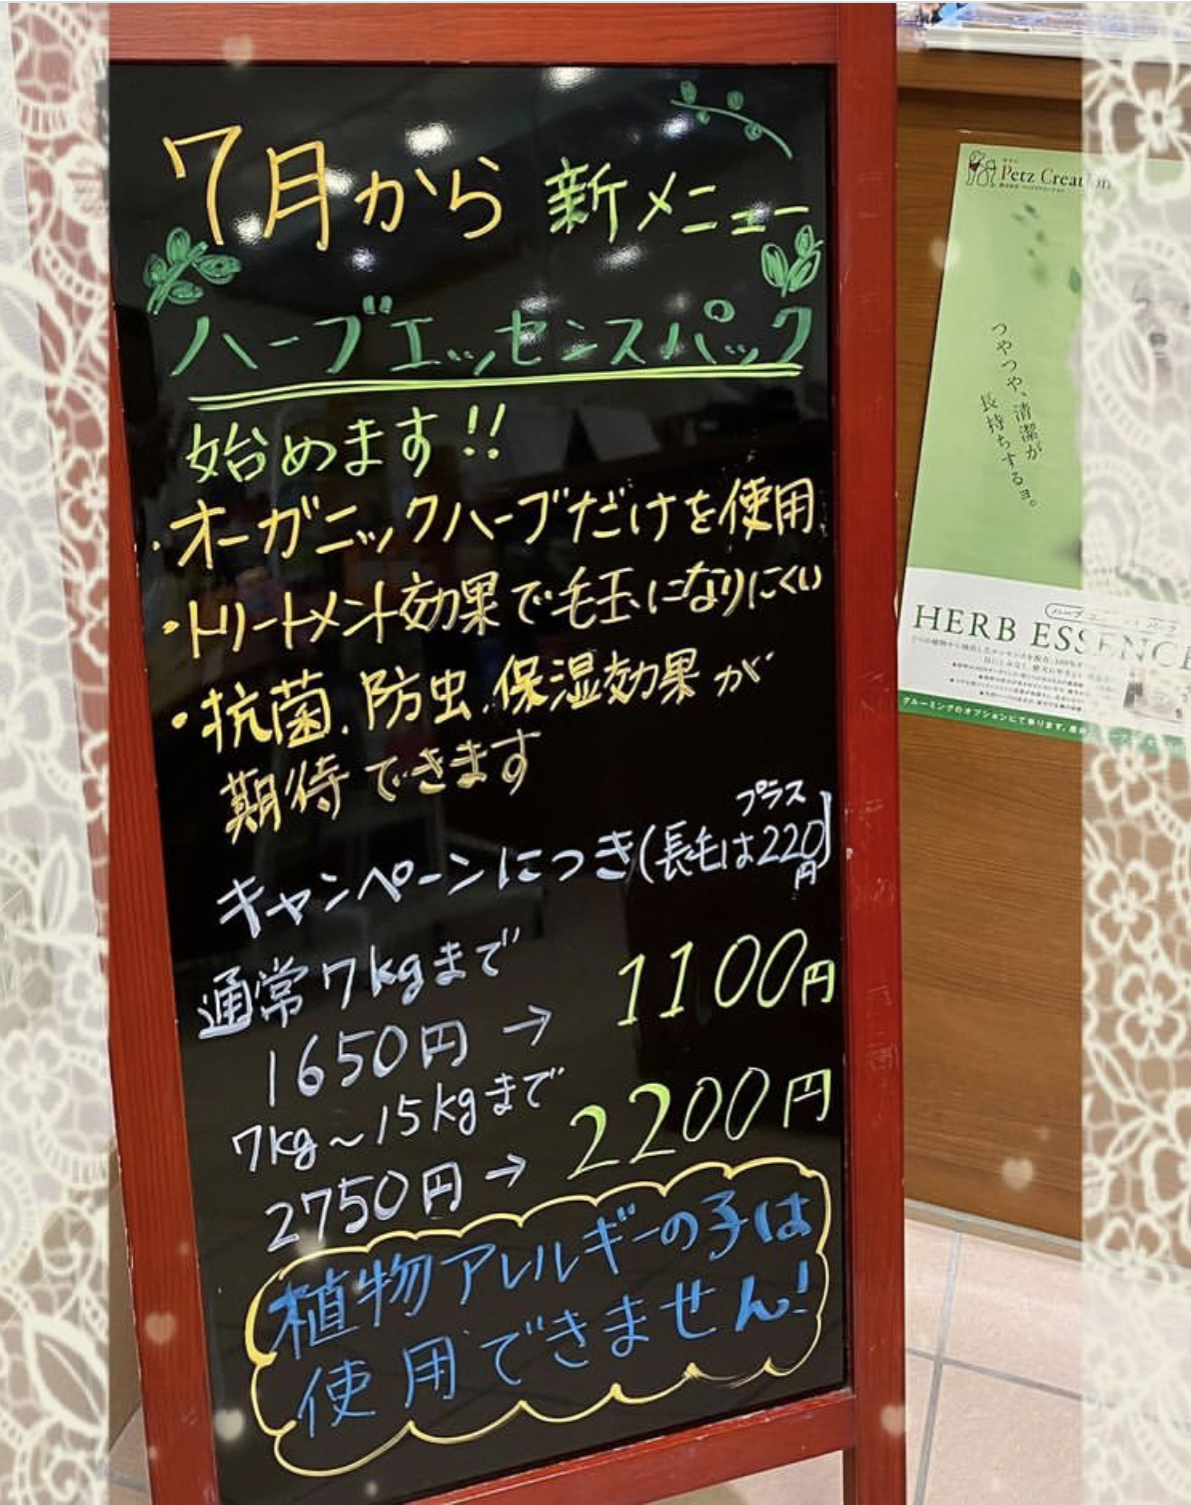 7月から 新メニュー
ハーブエッセンスパック
始めます!!
・オーガニックハーブだけを使用
・トリートメント効果で毛玉になりにくい
・抗菌、防虫、保湿効果が
期待できます
キャンペーンにつき(長毛はプラス220円)
通常7kgまで
1650円→ 1100円
7kg～15kgまで
2750円→ 2200円
植物アレルギーの子は
使用できません!
Petz Creation
つやつや、清潔が
長持ちするヨ。
HERB ESSENCE
グルーミングのオプションにて承ります。